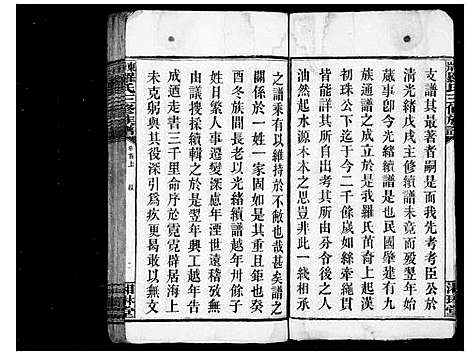 支譜其最著者嗣是而我先考考臣公於
清光緒戊戌主修續譜未竟而歿翌年始
蕆事卽今光緒續譜也民國肇建有九
族通譜之成立於是我羅氏苗裔上起漢
初珠公下迄於今二千餘歲如絲牽繩貫
皆能詳其所自出考其所出分令後之人
油然起水源木本之思豈非此一綫相承
之譜乘有以維持於不敝也哉甚矣譜之
關係於一姓一家固如是其重且鉅也癸
酉冬族間長老以光緒續譜越年卅餘子
姓日繁人事遷變深慮年湮世遠稽攷無
資議援續輯之於是翌年興工越年告
成迺走書三千里命序於霓霓辟居海上
未克躬與其役深引爲疚更曷敢以無文
羅氏三修族譜
卷首上
叙